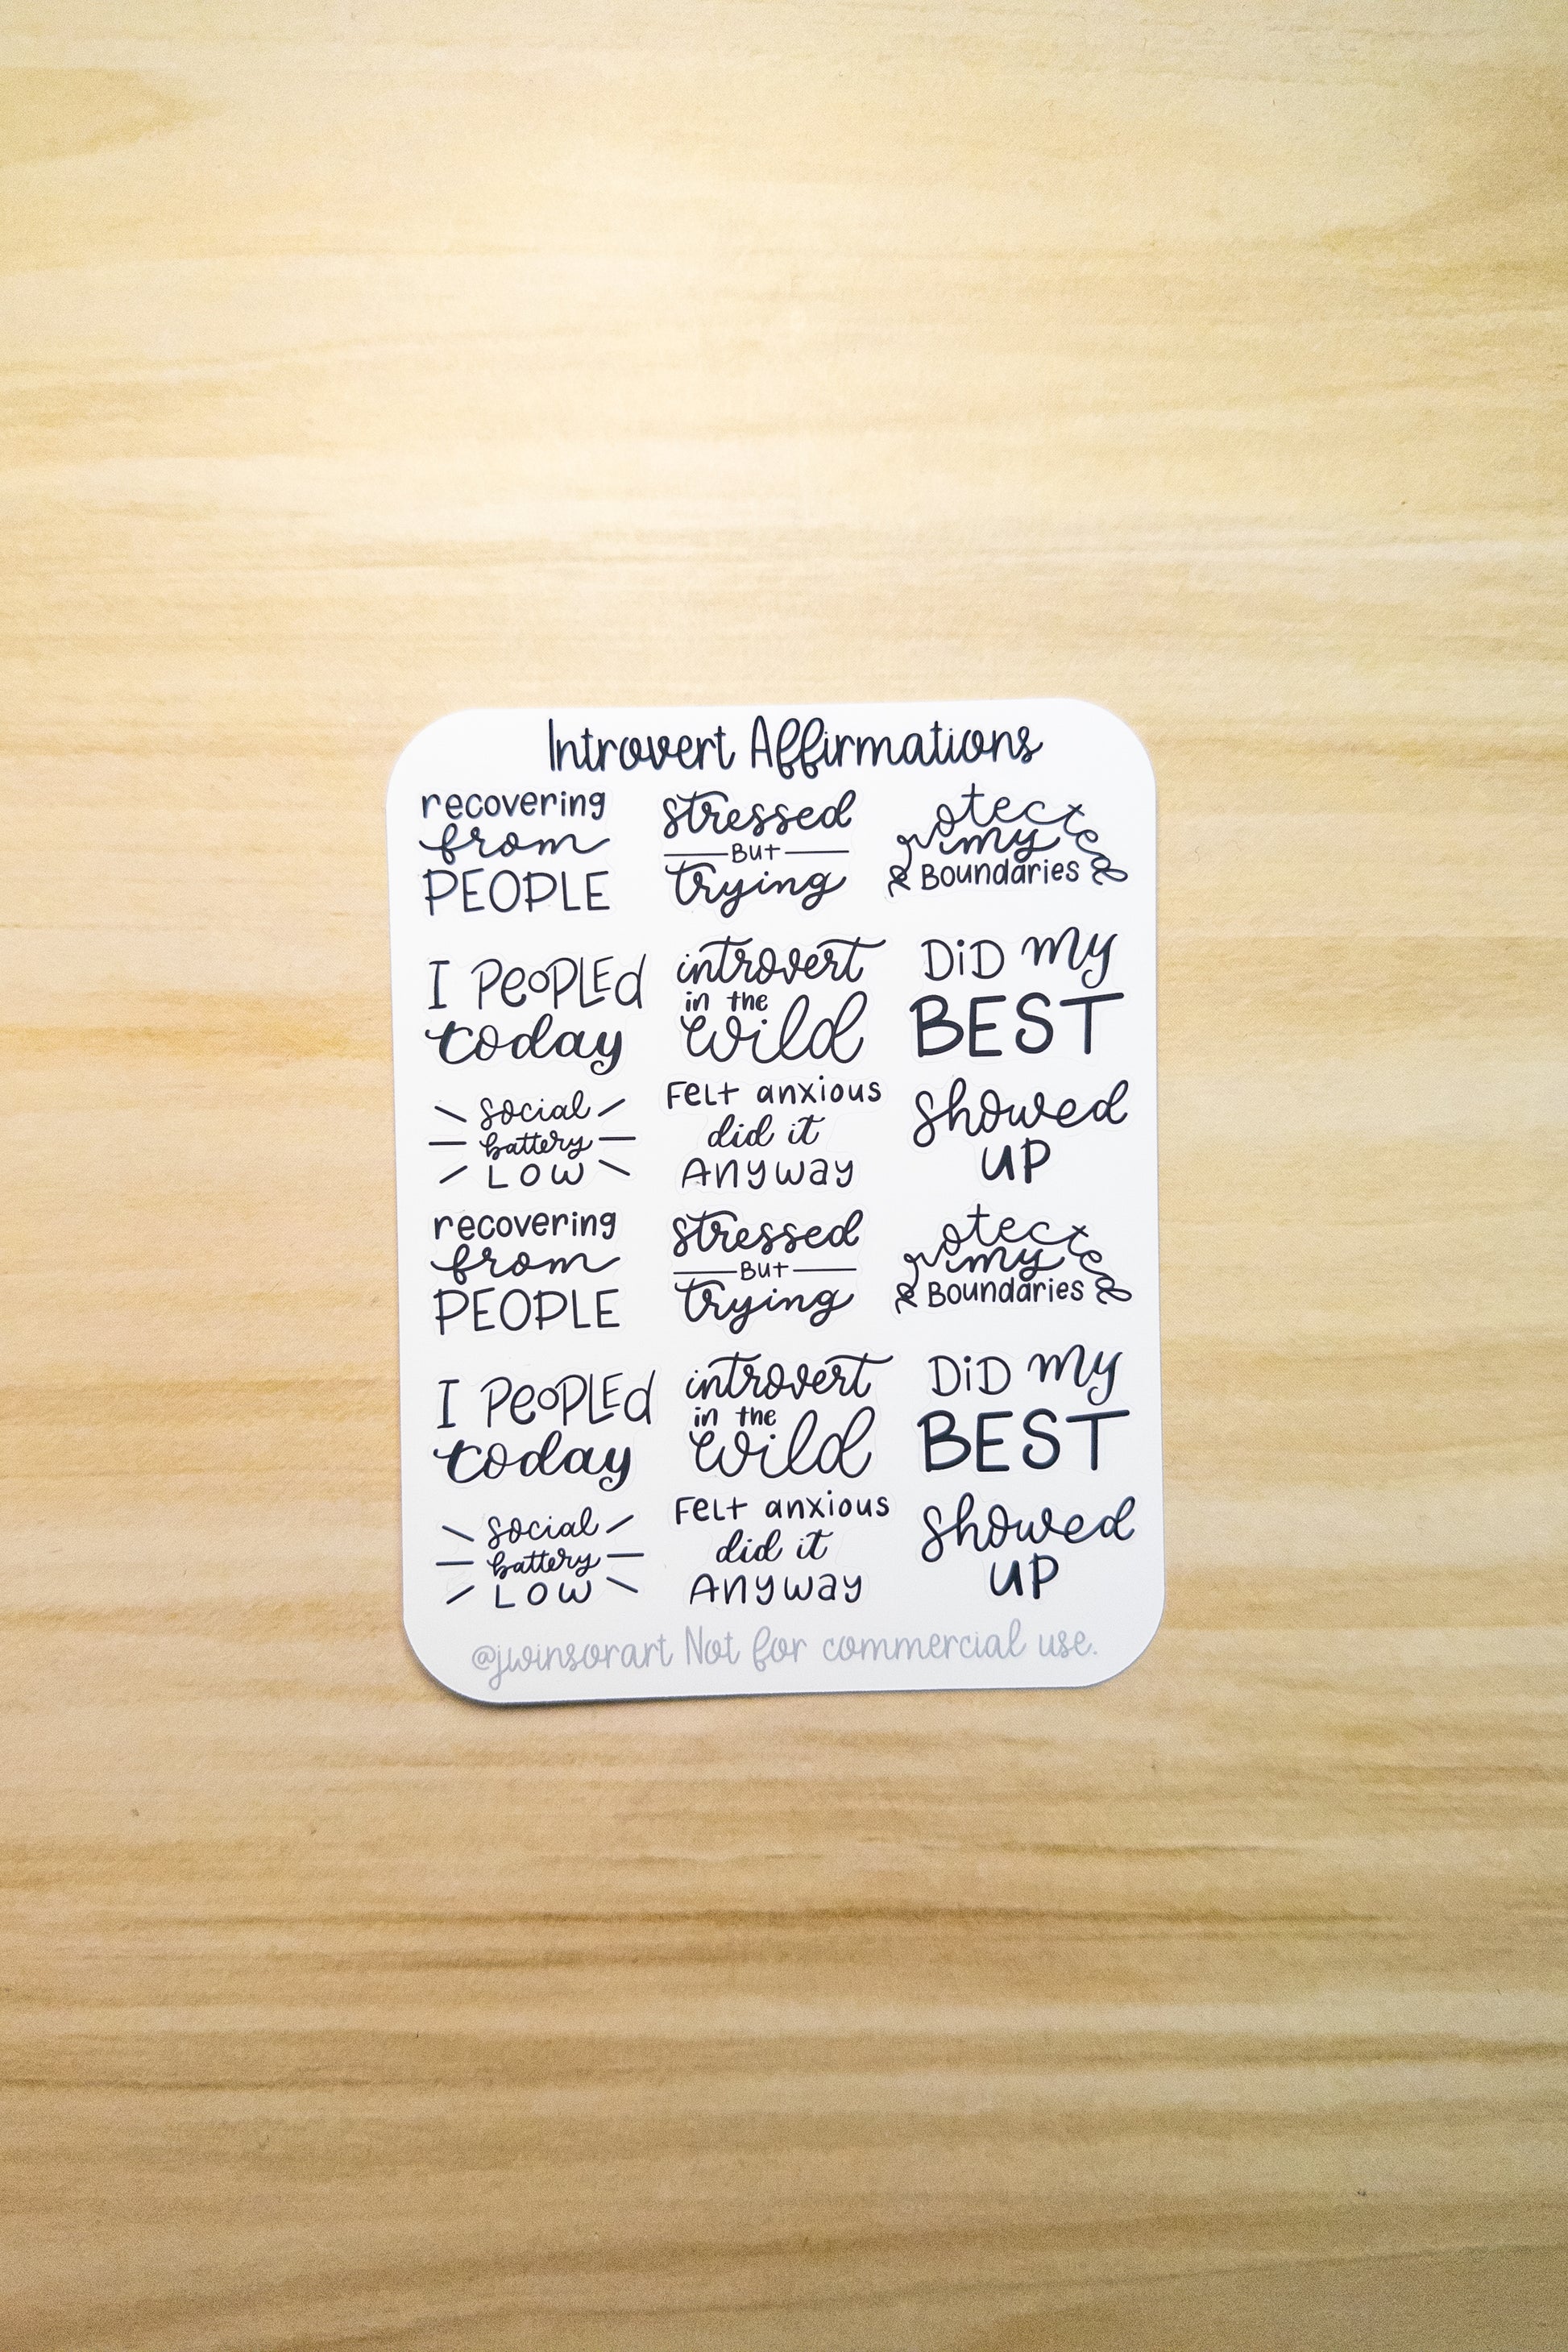 Introvert Affirmations
recovering
from
PEOPLE
stressed
But
trying
protected
my
Boundaries
I PeoPLEd
today
introvert
in the
wild
DiD my
BEST
social
battery
LOW
FeLt anxious
did it
ANyway
showed
UP
recovering
from
PEOPLE
stressed
But
trying
protected
my
Boundaries
I PeoPLEd
today
introvert
in the
wild
DiD my
BEST
social
battery
LOW
FeLt anxious
did it
ANyway
showed
UP
@jwinsorart Not for commercial use.